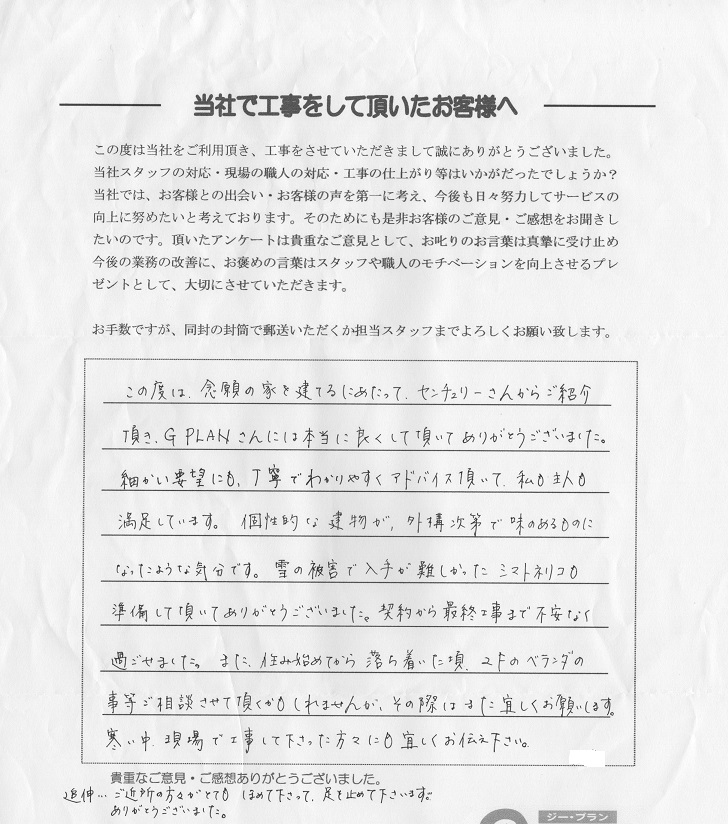 当社で工事をして頂いたお客様へ
この度は当社をご利用頂き、工事をさせていただきまして誠にありがとうございました。
当社スタッフの対応・現場の職人の対応・工事の仕上がり等はいかがだったでしょうか？
当社では、お客様との出会い・お客様の声を第一に考え、今後も日々努力してサービスの
向上に努めたいと考えております。そのためにも是非お客様のご意見・ご感想をお聞きし
たいのです。頂いたアンケートは貴重なご意見として、お叱りのお言葉は真摯に受け止め
今後の業務の改善に、お褒めの言葉はスタッフや職人のモチベーションを向上させるプレ
ゼントとして、大切にさせていただきます。
お手数ですが、同封の封筒で郵送いただくか担当スタッフまでよろしくお願い致します。
この度は、念願の家を建てるにあたって、センチュリーさんからご紹介
頂き、G PLANさんには本当に良くして頂いてありがとうございました。
細かい要望にも、丁寧でわかりやすくアドバイス頂いて、私も主人も
満足しています。個性的な建物が、外構次第で味のあるものに
なったような気分です。雪の被害で入手が難しかったシマトネリコも
準備して頂いてありがとうございました。契約から最終工事まで不安なく
過ごせました。また、住み始めてから落ち着いた頃、2Fのベランダの
事等ご相談させて頂くかもしれませんが、その際はまた宜しくお願いします。
寒い中、現場で工事して下さった方々にも宜しくお伝え下さい。
貴重なご意見・ご感想ありがとうございました。
追伸… ご近所の方々がとても ほめて下さって、足を止めて下さいます。
ありがとうございました。
ジー・プラン